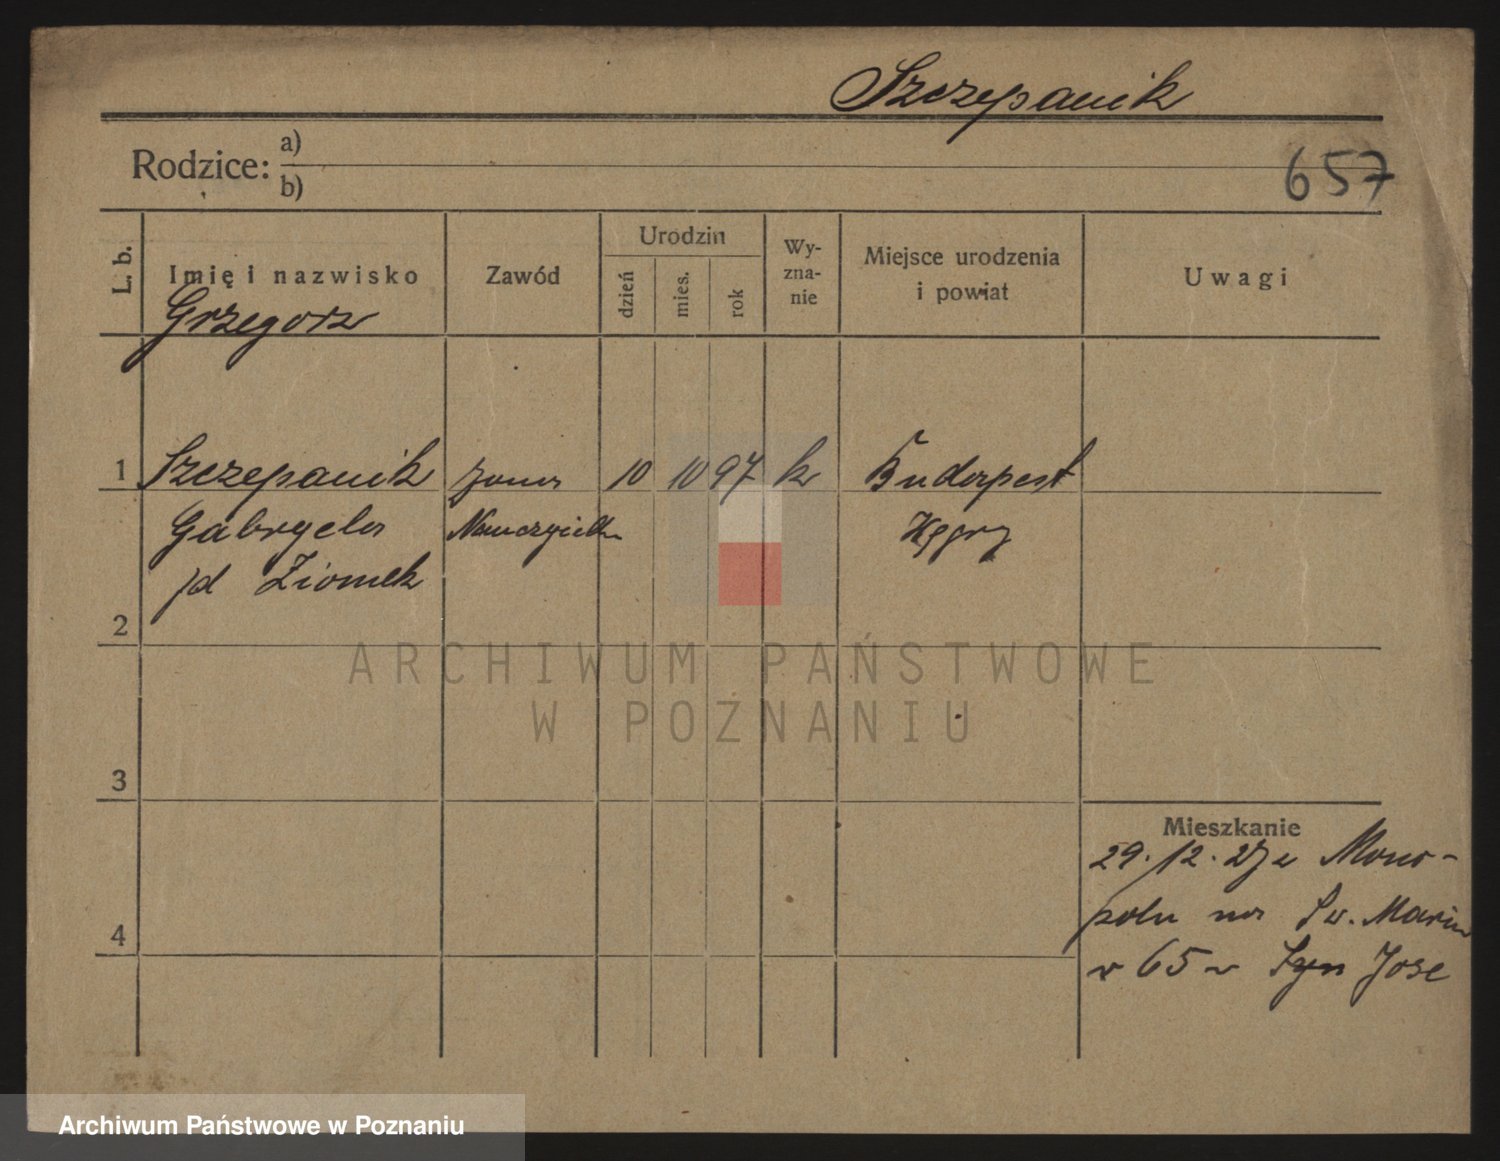 Szczepanik
Rodzice: a)
b)
657
L. b.
Imię i nazwisko
Zawód
Urodzin
dzień
mies.
rok
Wy-
zna-
nie
Miejsce urodzenia
i powiat
Uwagi
Grzegorz
1 Szczepanik żona 10 10 97 kr Budapest
Gabryela Nauczycielka Węgry
jd Ziomek
2
3
4
Mieszkanie
29.12.27 z Mono-
polu na Św. Marcin
r 65 Jose
ARCHIWUM PAŃSTWOWE
W POZNANIU
Archiwum Państwowe w Poznaniu